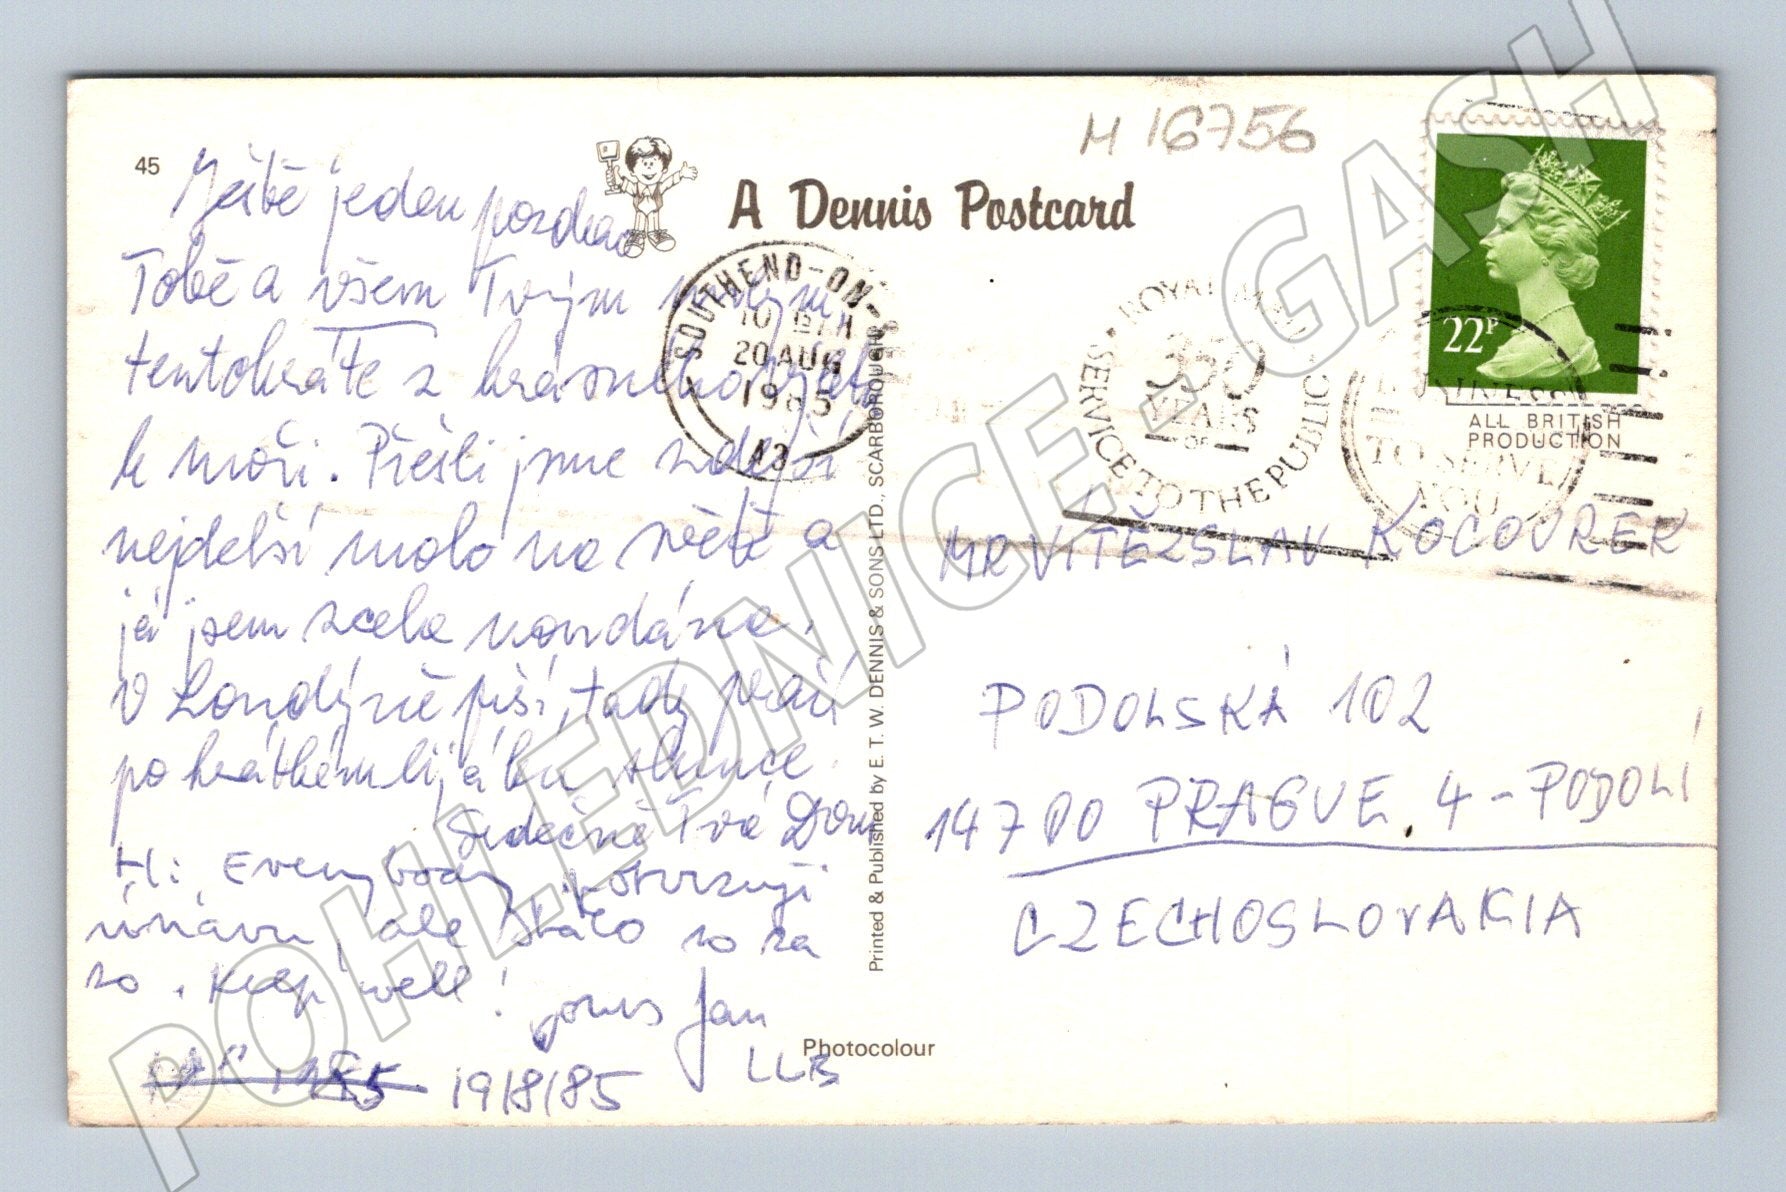 45
A Dennis Postcard
M 16756
Ještě jeden pozdrav
Tobě a všem Tvým
tentokráte z krásného
k moři. Přešli jsme zdejší
nejdelší molo na světě a
já jsem zcela
V Londýně píší, tady
po krátkém slunce.
Srdečně Tvá
Hi Everybody potvrzuji
únavu, ale stálo to za
to. Keep well!
yours Jan
1985 19/8/85
LLB
Photocolour
Printed & Published by E. T. W. DENNIS & SONS LTD., SCARBOROUGH
SOUTHEND-ON-
20 AUG
1985
A3
ROYAL MAIL
350
YEARS
OF
SERVICE TO THE PUBLIC
22P
ALL BRITISH
PRODUCTION
TO SERVE
YOU
MR VÍTĚZSLAV KOCOUREK
PODOLSKÁ 102
147 00 PRAGUE 4 - PODOLI
CZECHOSLOVAKIA
POHLEDNICE - GASH